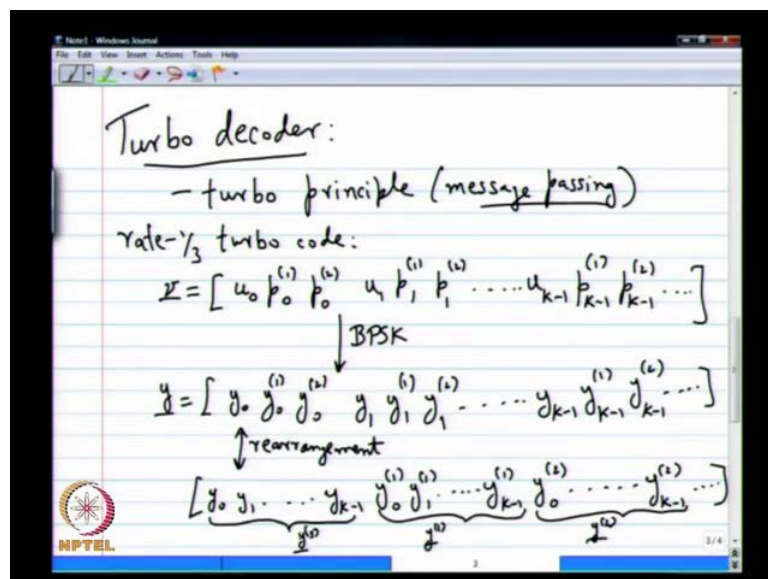 Note1 - Windows Journal
File Edit View Insert Actions Tools Help
Turbo decoder:
- turbo principle (message passing)
rate-1/3 turbo code:
v = [ u₀ p₀⁽¹⁾ p₀⁽²⁾ u₁ p₁⁽¹⁾ p₁⁽²⁾ ..... u_{k-1} p_{k-1}⁽¹⁾ p_{k-1}⁽²⁾ ... ]
BPSK
y = [ y₀ y₀⁽¹⁾ y₀⁽²⁾ y₁ y₁⁽¹⁾ y₁⁽²⁾ ...... y_{k-1} y_{k-1}⁽¹⁾ y_{k-1}⁽²⁾ ... ]
rearrangement
[ y₀ y₁ .... y_{k-1} y₀⁽¹⁾ y₁⁽¹⁾ .... y_{k-1}⁽¹⁾ y₀⁽²⁾ ...... y_{k-1}⁽²⁾ ... ]
y⁽ˢ⁾ y⁽¹⁾ y⁽²⁾
NPTEL
3/4
3